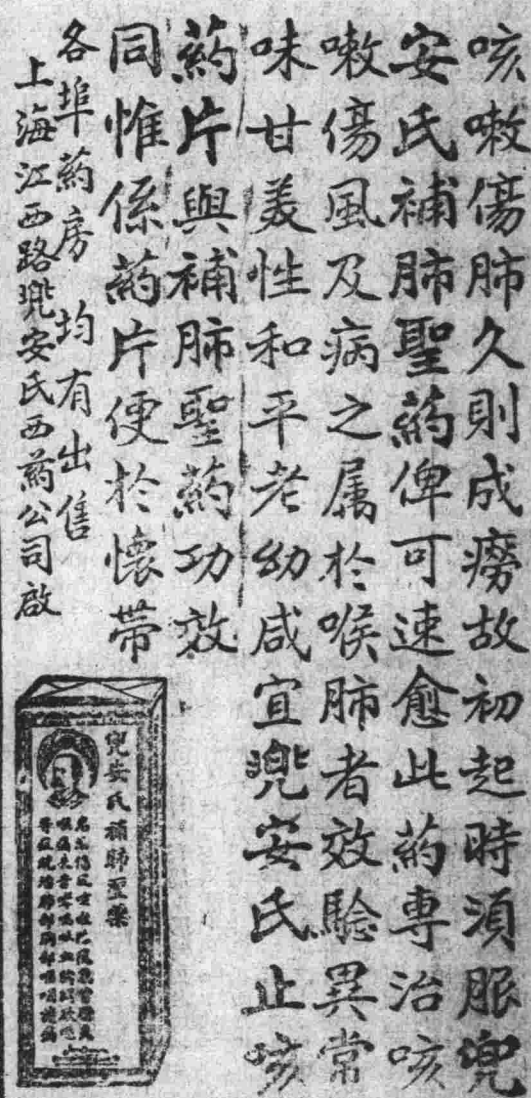 咳嗽傷肺久則成癆故初起時須服兜
安氏補肺聖藥俾可速愈此藥專治咳
嗽傷風及病之属於喉肺者效驗異常
味甘美性和平老幼咸宜兜安氏止咳
藥片與補肺聖藥功效
同惟係藥片便於懷帶
各埠藥房均有出售
上海江西路兜安氏西藥公司啟
兜安氏補肺聖藥